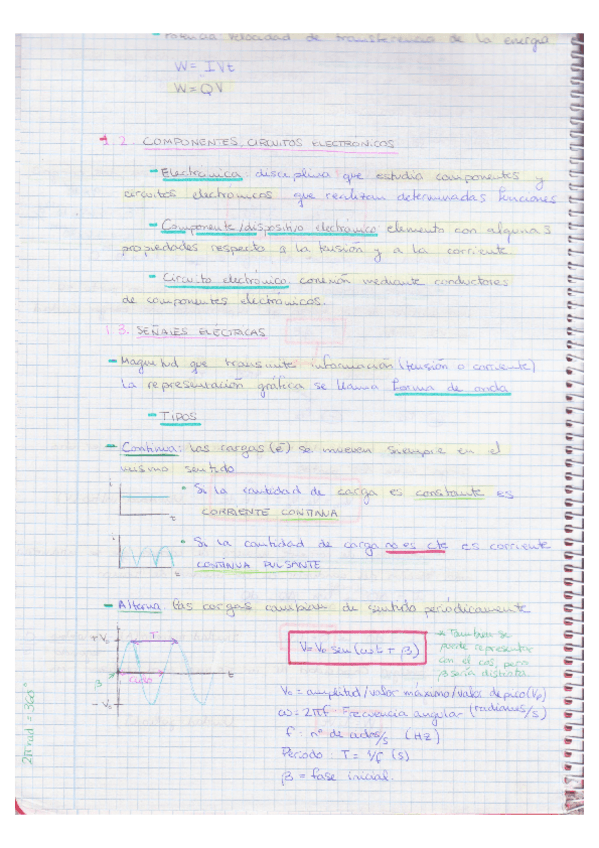 - Potencia velocidad de transferencia de la energía
W = IVt
W = QV
1.2. COMPONENTES CIRCUITOS ELECTRONICOS
- Electrónica disciplina que estudia componentes y
circuitos electrónicos que realizan determinadas funciones
- Componente/dispositivo electrónico elemento con algunas
propiedades respecto a la tensión y a la corriente
- Circuito electrónico conexión mediante conductores
de componentes electrónicos.
1.3. SEÑALES ELÉCTRICAS
- Magnitud que transmite información (tensión o corriente)
La representación gráfica se llama forma de onda
- TIPOS
- Continua: Las cargas (e⁻) se mueven siempre en el
mismo sentido
i
• Si la cantidad de carga es constante es
CORRIENTE CONTINUA
t
• Si la cantidad de carga no es cte es corriente
CONTINUA PULSANTE
- Alterna: las cargas cambian de sentido periódicamente
+V₀
T
t
β
ciclo
-V₀
V=V₀ sen(ωt + β)
* También se
puede representar
con el cos, pero
β sería distinta
V₀ = amplitud/valor máximo/valor de pico (Vp)
ω = 2πf · Frecuencia angular (radianes/s)
f · nº de ciclos/s (HZ)
Período · T = 1/f (s)
β = fase inicial.
2π rad = 360°